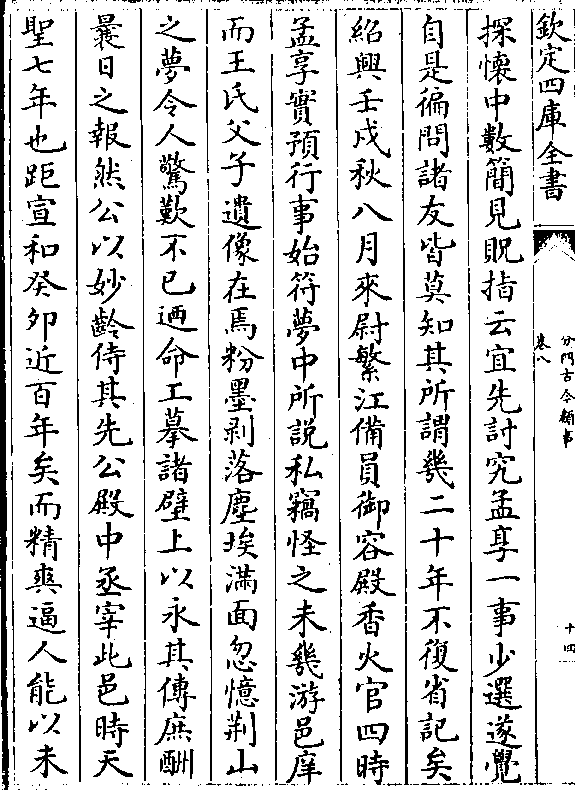 欽定四庫全書
分門古今類事
卷八
十四
探懷中數簡見貺指云宜先討究孟享一事少選遂覺
自是徧問諸友皆莫知其所謂幾二十年不復省記矣
紹興壬戌秋八月來尉繁江備員御容殿香火官四時
孟享實預行事始符夢中所說私竊怪之未幾游邑庠
而王氏父子遺像在焉粉墨剥落塵埃滿面忽憶荆山
之夢令人驚歎不已廼命工摹諸壁上以永其傳庶酬
曩日之報然公以妙齡侍其先公殿中丞宰此邑時天
聖七年也距宣和癸卯近百年矣而精爽逼人能以未